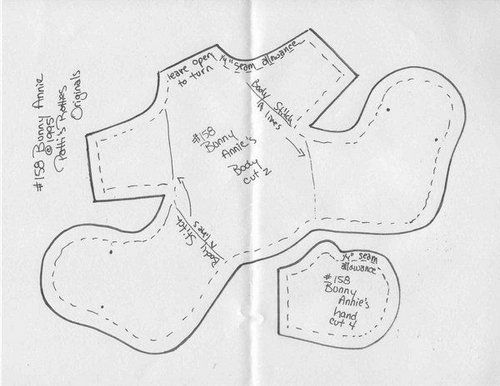 #158 Bunny Annie
©1995
Patti's Ratties
Originals
leave open
to turn
1/4" seam allowance
Body Stitch
lines
#158
Bunny
Annie's
Body
cut 2
Body
Stitch
lines
1/4" seam
allowance
#158
Bunny
Annie's
hand
cut 4